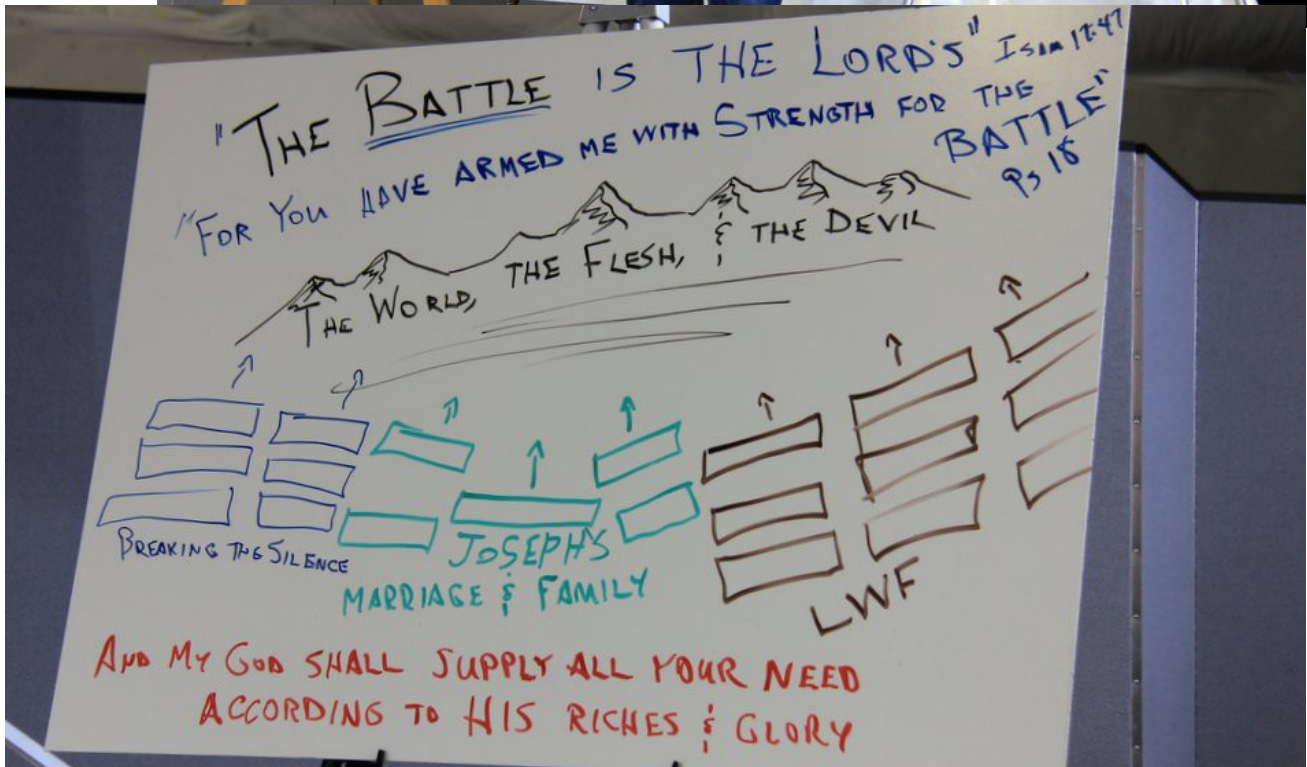 "THE BATTLE IS THE LORD'S" I SAM 17:47
"FOR YOU HAVE ARMED ME WITH STRENGTH FOR THE
BATTLE"
PS 18
THE WORLD, THE FLESH, & THE DEVIL
BREAKING THE SILENCE
JOSEPH'S
MARRIAGE & FAMILY
LWF
AND MY GOD SHALL SUPPLY ALL YOUR NEED
ACCORDING TO HIS RICHES & GLORY